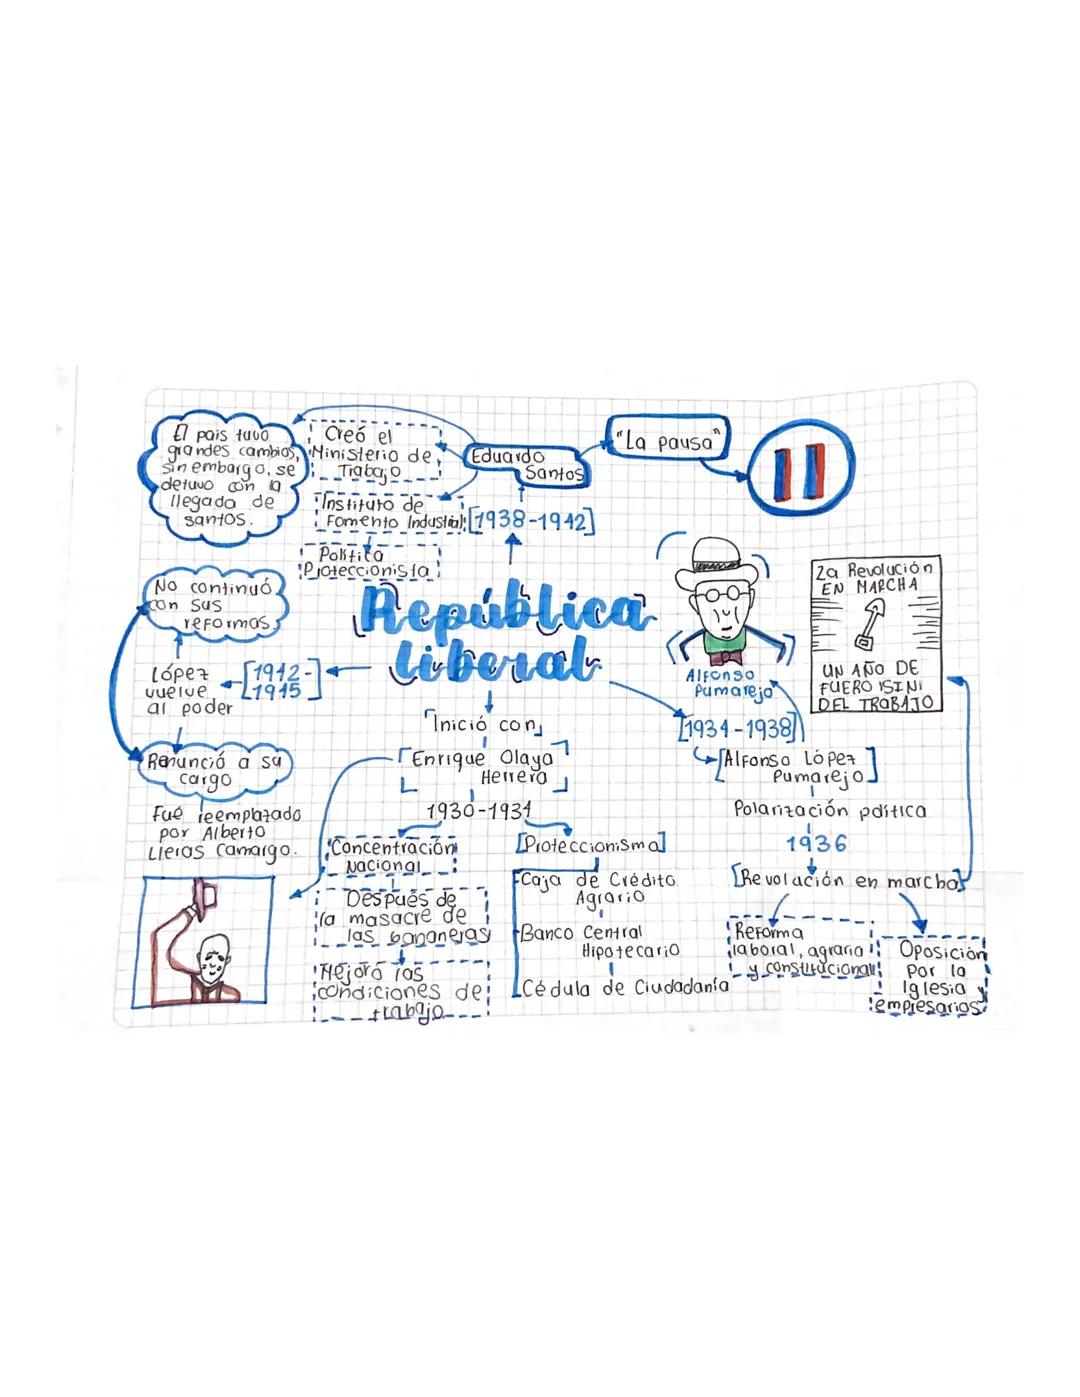 El pais tuvo
grandes cambios,
sin embargo, se
detuvo con la
llegada de
santos.
Creó el
Ministerio de
Trabajo
Instituto de
Fomento Industrial
Política
Proteccionista
Eduardo
Santos
[1938-1942]
"La pausa"
República
liberal
No continuó
con sus
reformas
López
vuelve
al poder
[1942-
1945]
Renunció a su
cargo
Fué reemplazado
por Alberto
Lleras Camargo.
Inició con
Enrique Olaya
Herrera
1930-1934
Concentración
Nacional
Después de
la masacre de
las bananeras
Mejoró las
condiciones de
trabajo
[Proteccionismo]
Caja de Crédito
Agrario
Banco Central
Hipotecario
Cédula de Ciudadanía
Alfonso
Pumarejo
[1934-1938]
[Alfonso López
Pumarejo]
Polarización política
1936
[Revolución en marcha]
Reforma
laboral, agraria
y constitucional
Oposición
por la
Iglesia y
empresarios
La Revolución
EN MARCHA
UN AÑO DE
DEL TRABAJO